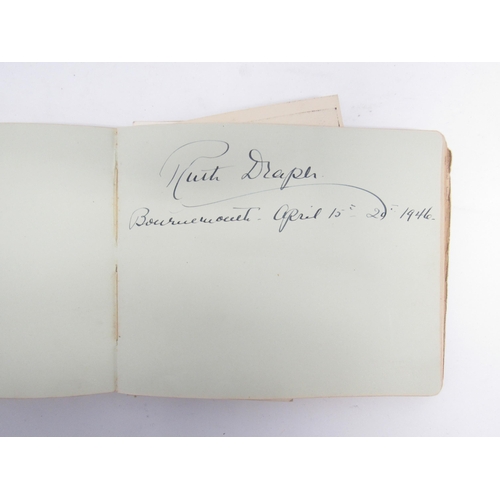 Ruth Draper.
Bournemouth. April 15th 20th 1946.